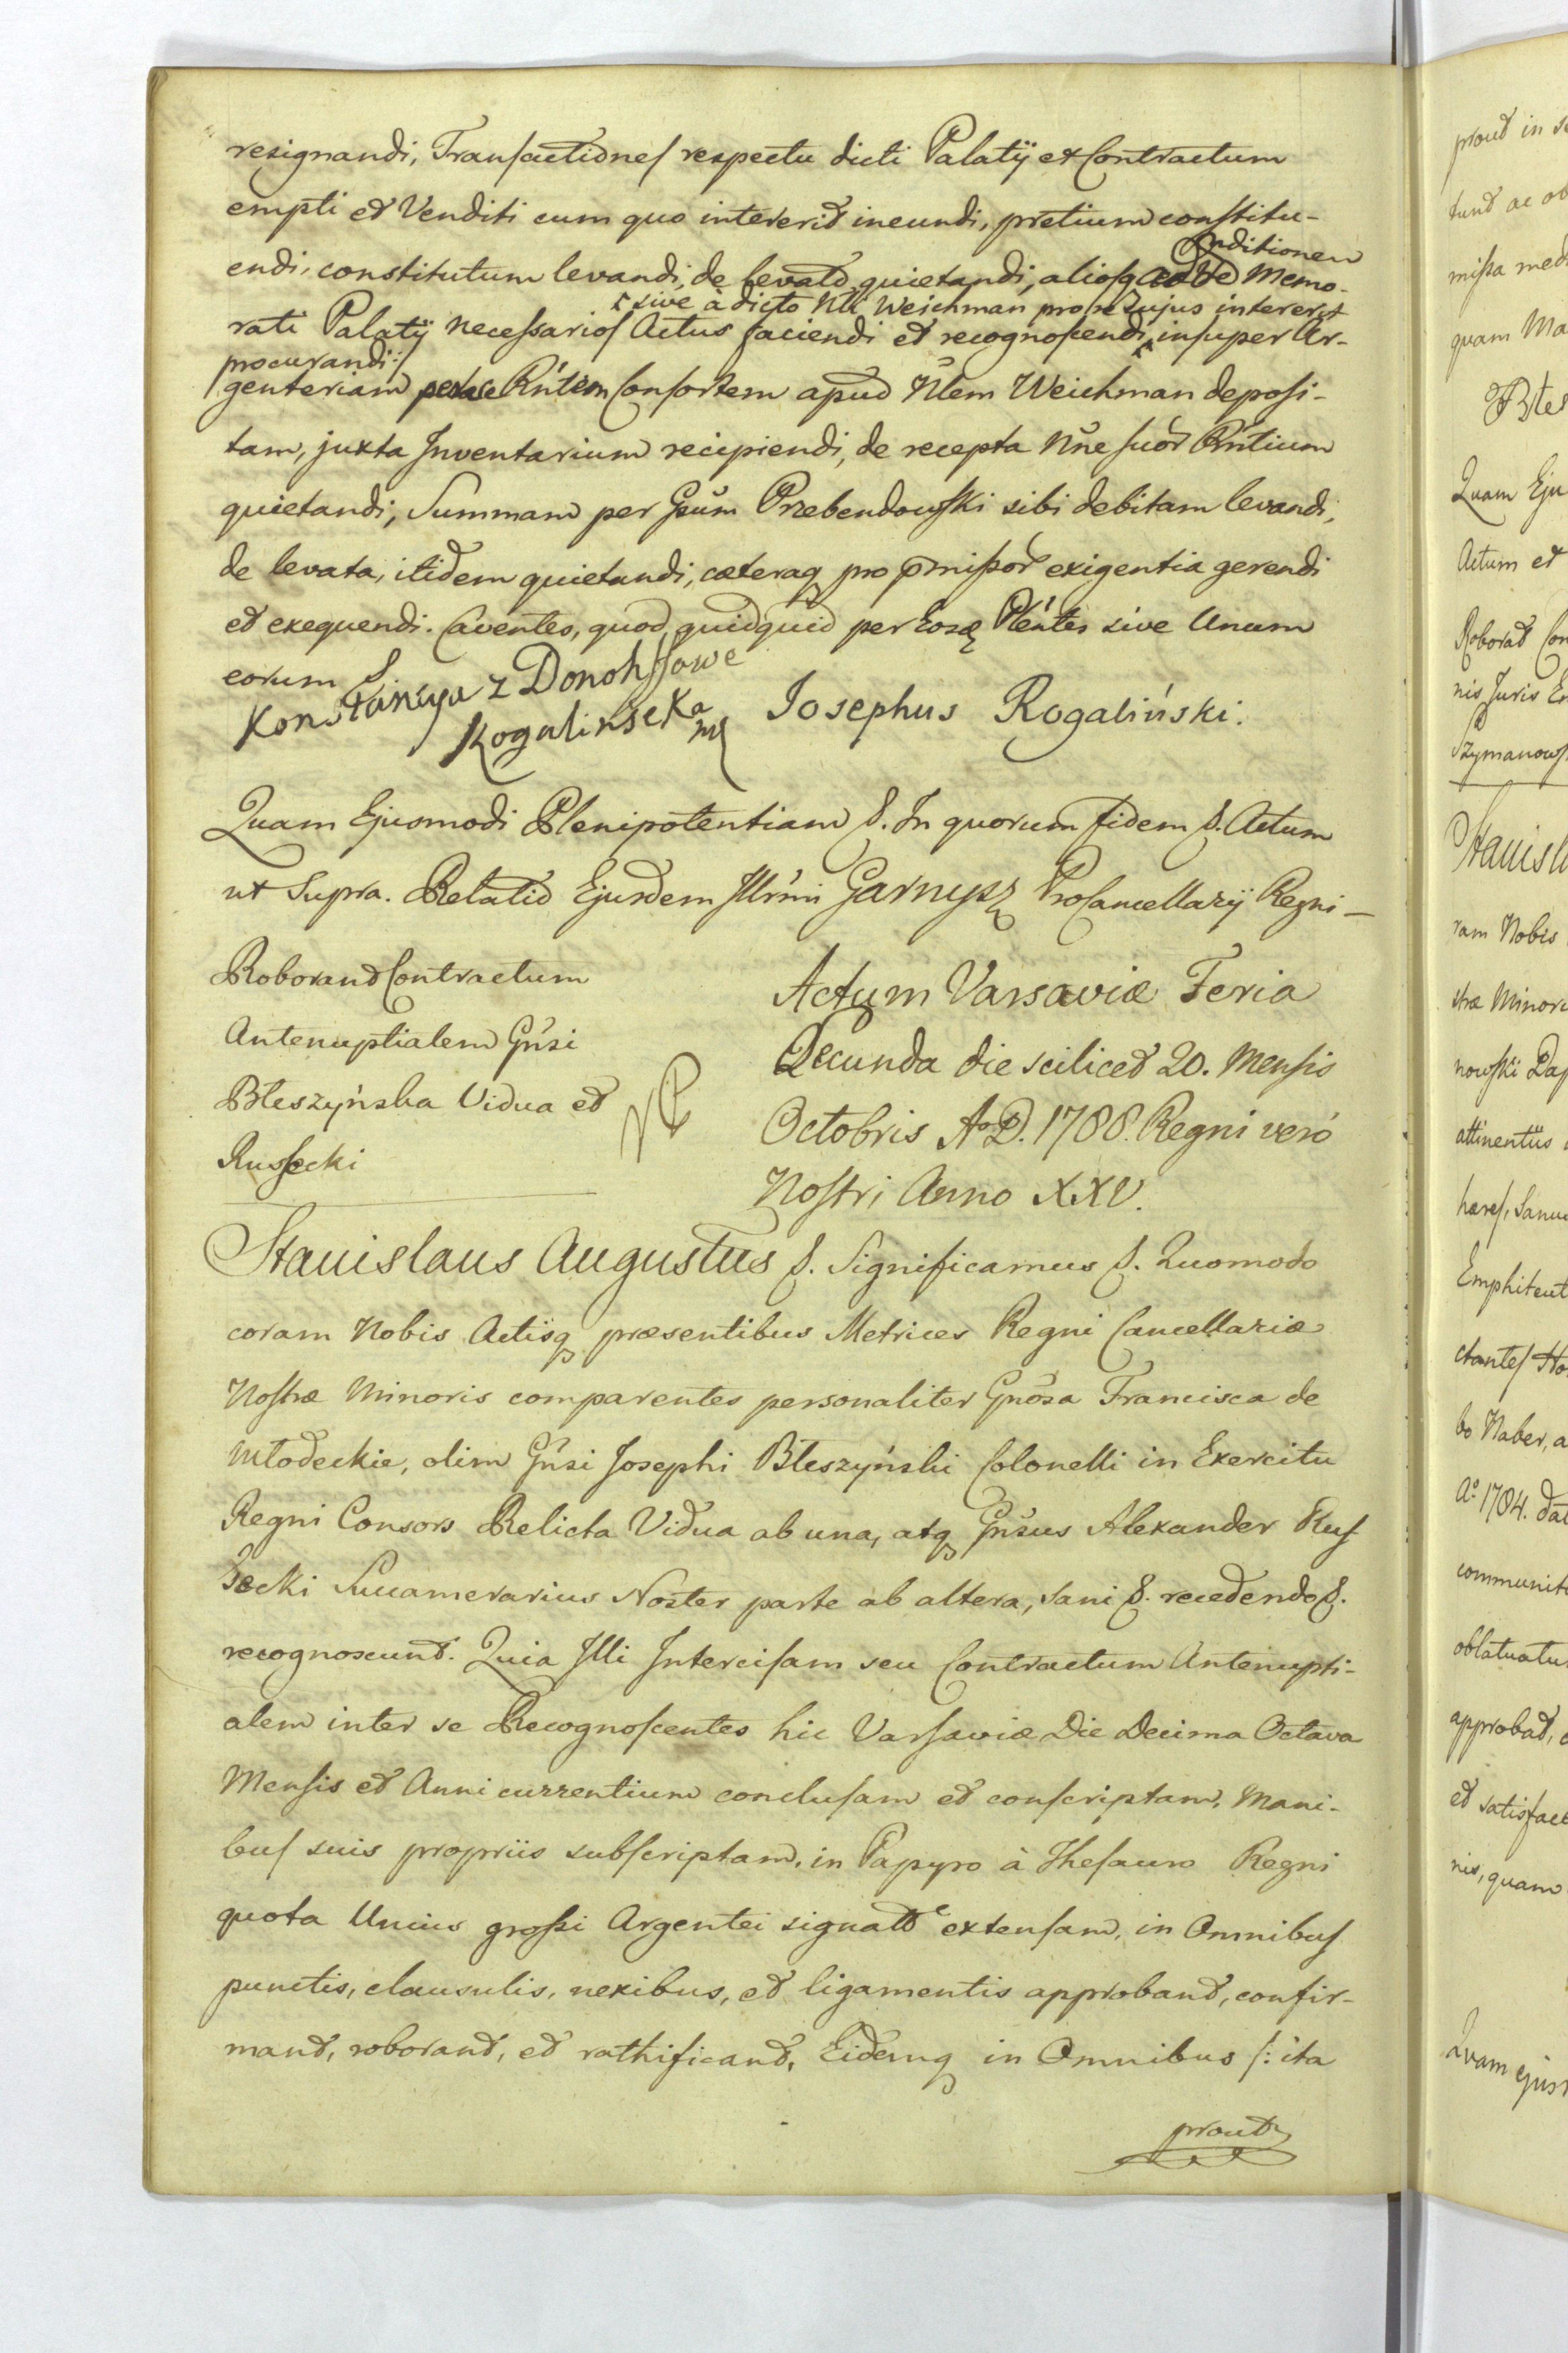 resignandi, Transactiones respectu dicti Palatÿ et Contractum
empti et Venditi cum quo intererit ineundi, pretium constitu-
endi, constitutum levandi, de levato quietandi, aliosq ad Conditionem Memo-
rati Palatÿ necessarios Actus faciendi et recognoscendi, insuper Ar-
sive à dicto Nli Weichman pro se cujus intererit
procurandi:/
genteriam per Rntem Consortem apud Nlem Weichman deposi-
tam, juxta Inventarium recipiendi, de recepta Nne suor Rntium
quietandi, Summam per Gsum Przebendowski sibi debitam levandi,
de levata, itidem quietandi, cæteraq pro pmissor exigentia gerendi
et exequendi. Caventes, quod quidquid per Eosd Plentes sive Unum
eorum &.
Konstancya z Donohffowe
Rogalinscka mp
Josephus Rogaliński.
Quam Ejusmodi Plenipotentiam &. In quorum fidem &. Actum
ut Supra. Relatio Ejusdem Illrmi Garnysz ProCancellarÿ Regni –
Roborand Contractum
Antenuptialem Gnsi
Błeszyńska Vidua et
Russecki
Actum Varsaviæ Feria
Secunda die scilicet 20. Mensis
Octobris A° D. 1788. Regni veró
Nostri Anno XXV.
Stanislaus Augustus &. Significamus &. Quomodo
coram Nobis Actisq præsentibus Metrices Regni Cancellariæ
Nostræ Minoris comparentes personaliter Gnosa Francisca de
Młodeckie, olim Gnsi Josephi Błeszyński Colonelli in Exercitu
Regni Consors Relicta Vidua ab una, atq Gnsus Alexander Rus
secki Succamerarius Noster parte ab altera, sani &. recedendo &.
recognoscunt. Quia Illi Intercisam seu Contractum Antenupti-
alem inter se Recognoscentes hic Varsaviæ Die Decima Octava
Mensis et Anni currentium conclusam et conscriptam, Mani-
bus suis propriis subscriptam, in Papyro à Thesauro Regni
quota Unius grossi Argentei signato extensam, in Omnibus
punctis, clausulis, nexibus, et ligamentis approband, confir-
mand, roborand, et rathificand, Eidemq in Omnibus /: ita
prout
prout in
tunt ac ob
missa med
quam Ma
Quam Eju
Actum et
Roborat Con
nis Juris Em
Szymanows
Stanisla
ram Nobis
stræ Minoris
nowski Dap
attinentiis
hæres, Sanus
Emphiteut
ctantes Ho
bo Naber, a
A° 1784. dat
communit
oblatuatu
approbat,
et satisfac
nis, quam
Quam ejus